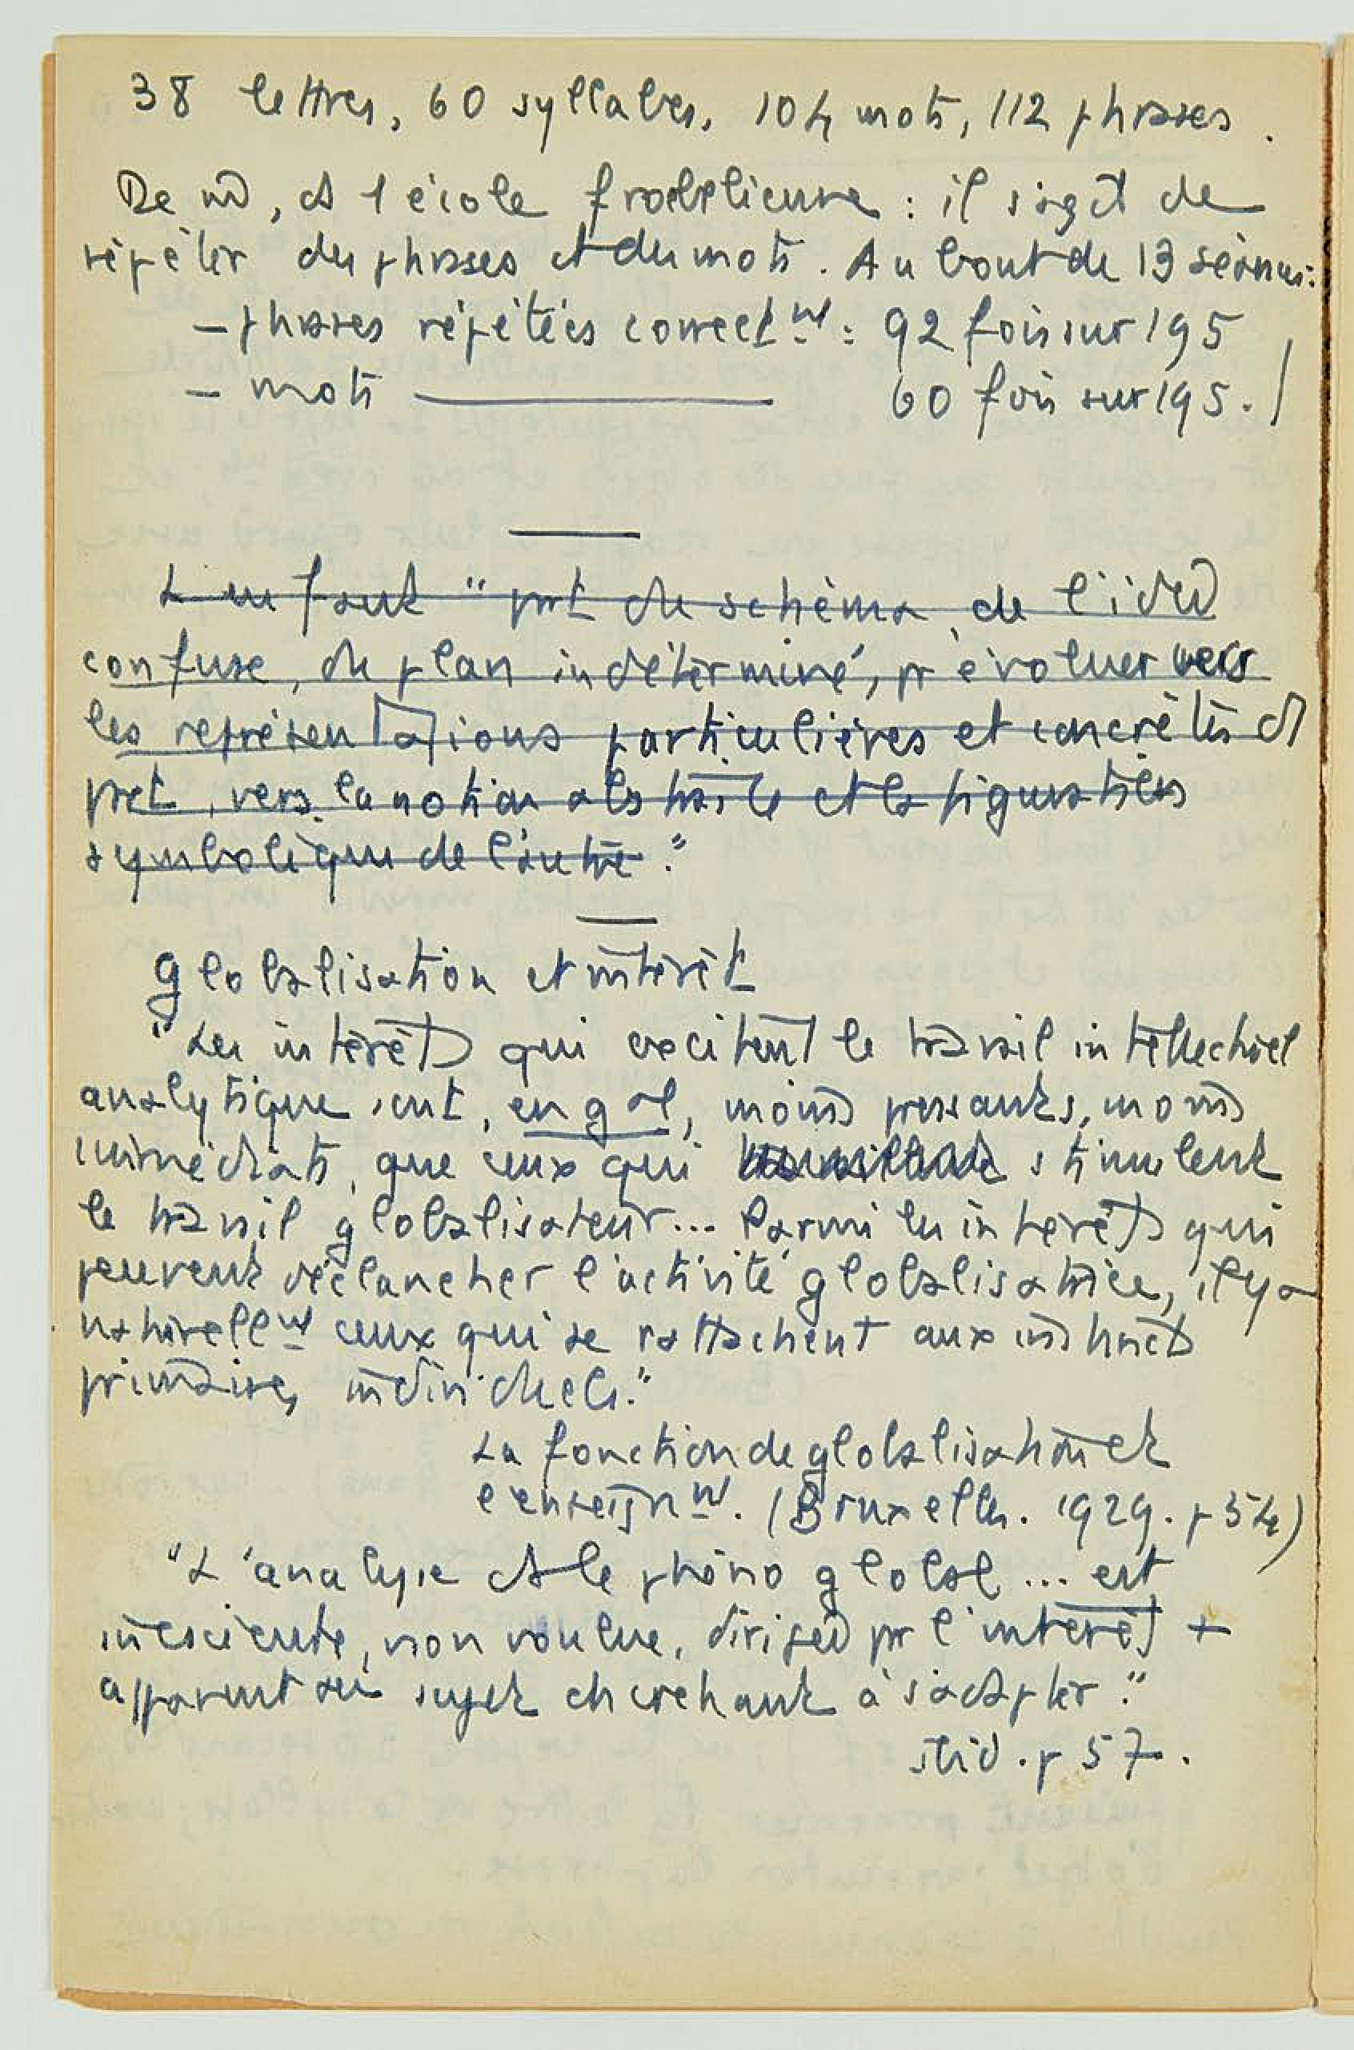 38 lettres, 60 syllabes, 104 mots, 112 phrases.
De m̂, à l'école froebelienne : il s'agit de
répéter des phrases et des mots. Au bout de 13 séances :
– phrases répétées correctnt : 92 fois sur 195
– mots ——— 60 fois sur 195. /
L'enfant "part du schéma, de l'idée
confuse, du plan indéterminé, pr évoluer vers
les représentations particulières et concrètes d'1
part, vers la notion abstraite et la figuration
symbolique de l'autre."
Globalisation et intérêt
"Les intérêts qui excitent le travail intellectuel
analytique sont, en gal, moins pressants, moins
immédiats, que ceux qui stimulent
le travail globalisateur... Parmi les intérêts qui
peuvent déclancher l'activité globalisatrice, il y a
naturellnt ceux qui se rattachent aux instincts
primaires, individuels."
La fonction de globalisation et
l'enseignnt. (Bruxelles. 1929. p 54)
"L'analyse ds le phéno global ... est
inconsciente, non voulue, dirigée pr l'intérêt +
apparent du sujet cherchant à s'adapter."
ibid. p 57.